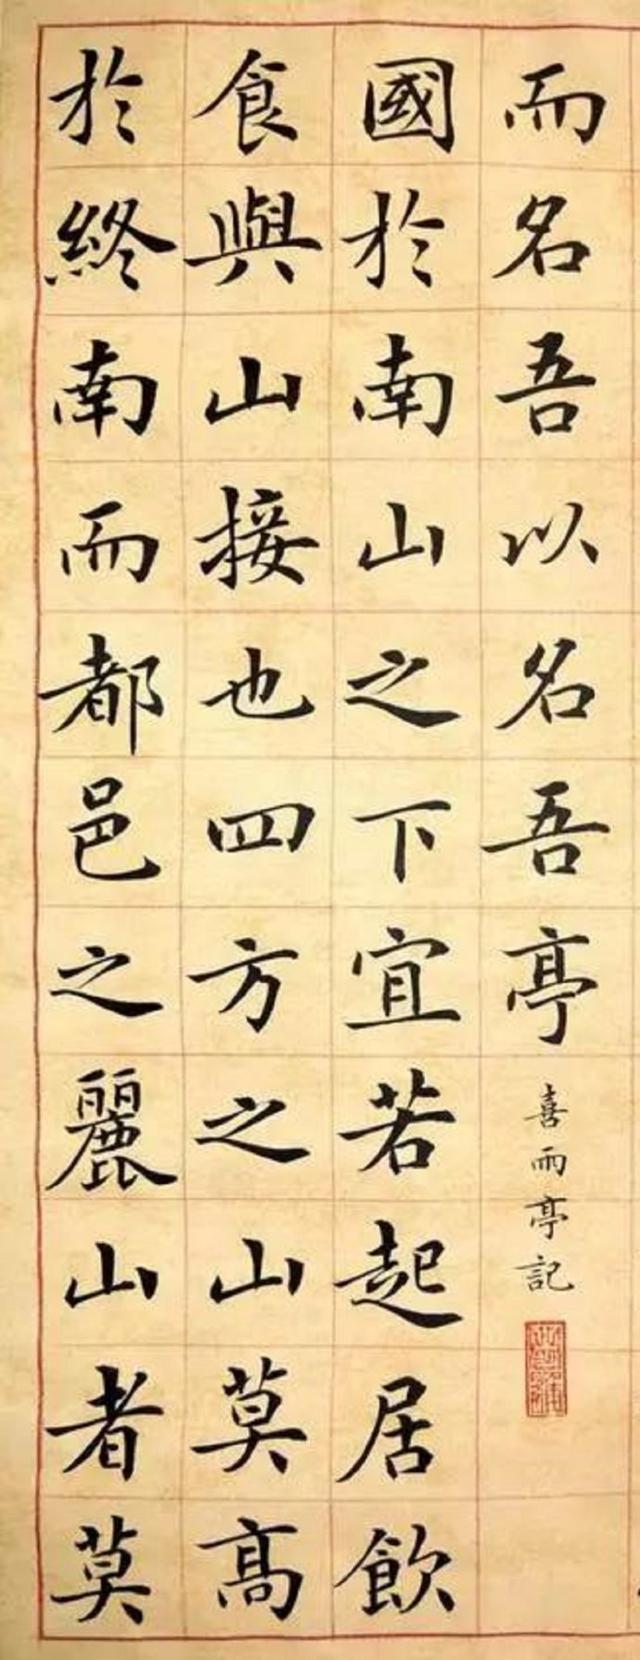 而名吾以名吾亭
喜雨亭記
國於南山之下宜若起居飲
食與山接也四方之山莫高
於終南而都邑之麗山者莫